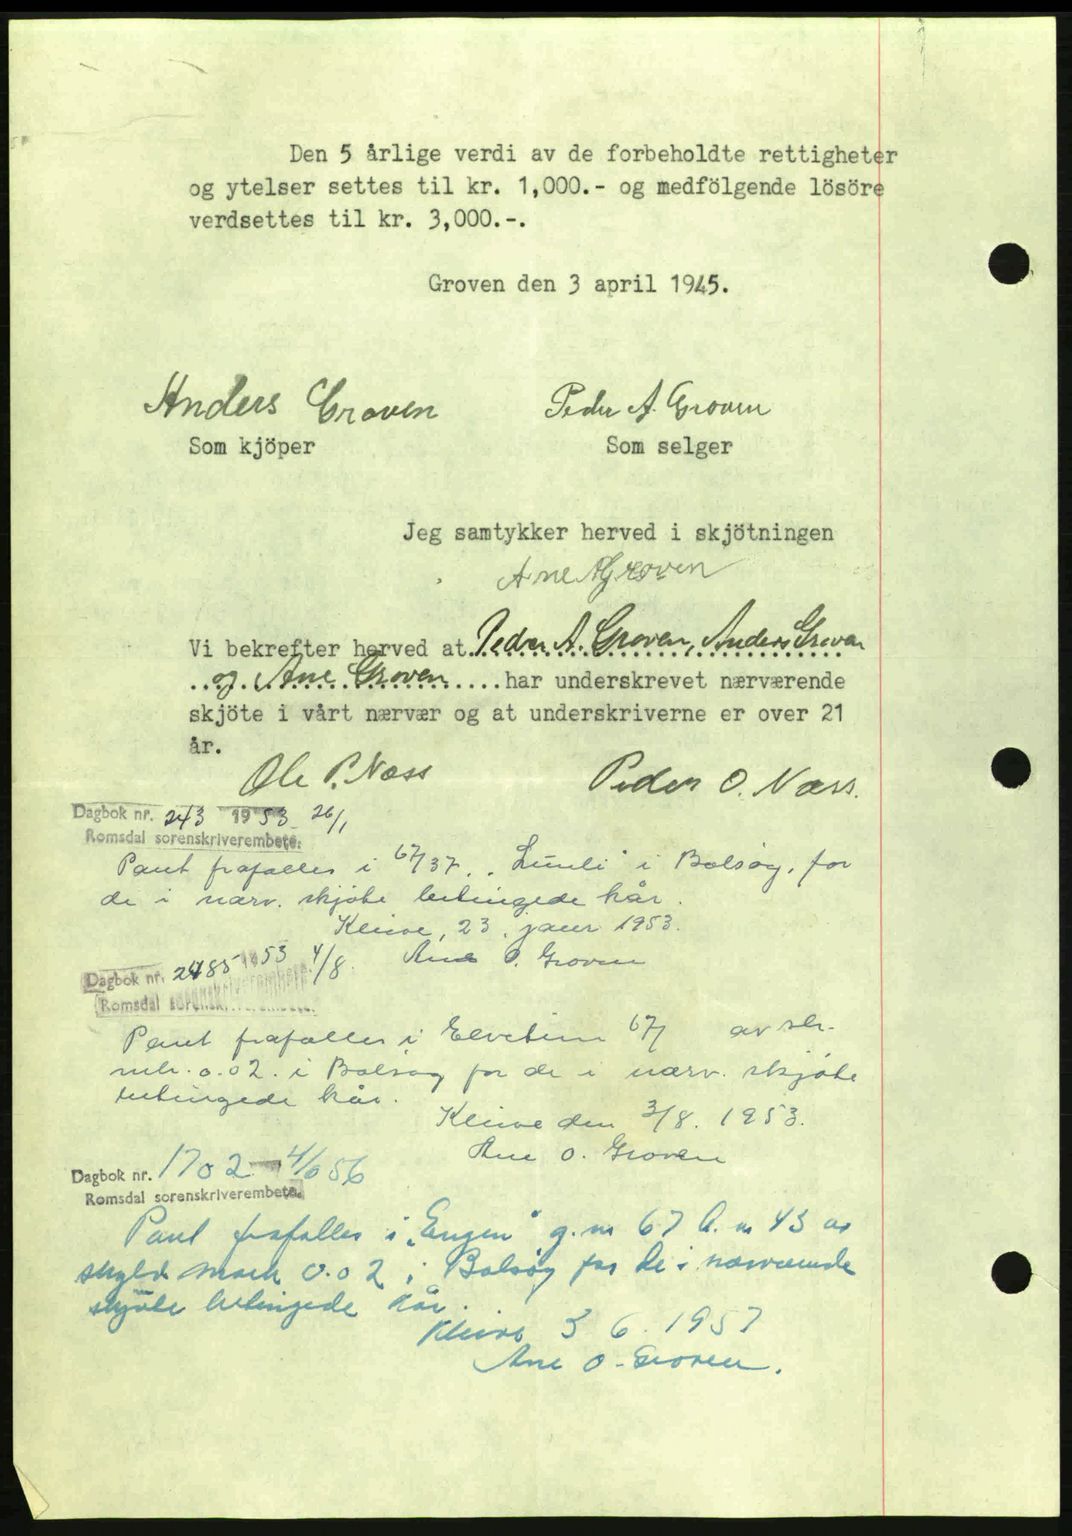 Den 5 årlige verdi av de forbeholdte rettigheter
og ytelser settes til kr. 1,000.- og medfölgende lösöre
verdsettes til kr. 3,000.-.
Groven den 3 april 1945.
Anders Groven
Peder A. Groven
Som kjöper
Som selger
Jeg samtykker herved i skjötningen
Ane Groven
Vi bekrefter herved at Peder A. Groven, Anders Groven
og Ane Groven har underskrevet nærværende
skjöte i vårt nærvær og at underskriverne er over 21
år.
Ole P. Næss
Peder O. Næss.
Dagbok nr. 243 1953 26/1
Romsdal sorenskriverembete.
Pant frafalles i 67/37 "Lunli" i Bolsøy, for
de i nærv. skjøte betingede kår.
Kleive, 23. januar 1953.
Ane O. Groven
Dagbok nr. 2485 1953 4/8.
Romsdal sorenskriverembete.
Pant frafalles i Elvetun 67/ av skr.
mrk. 0.02. i Bolsøy for de i nærv. skjøte
betingede kår.
Kleive den 3/8. 1953.
Ane O. Groven
Dagbok nr. 1702 4/6 56
Romsdal sorenskriverembete.
Pant frafalles i "Engen" g.nr 67 b.nr 43 av
skyld mark 0.02 i Bolsøy for de i nærværende
skjöte betingede kår.
Kleive 3 6. 1957
Ane O. Groven.